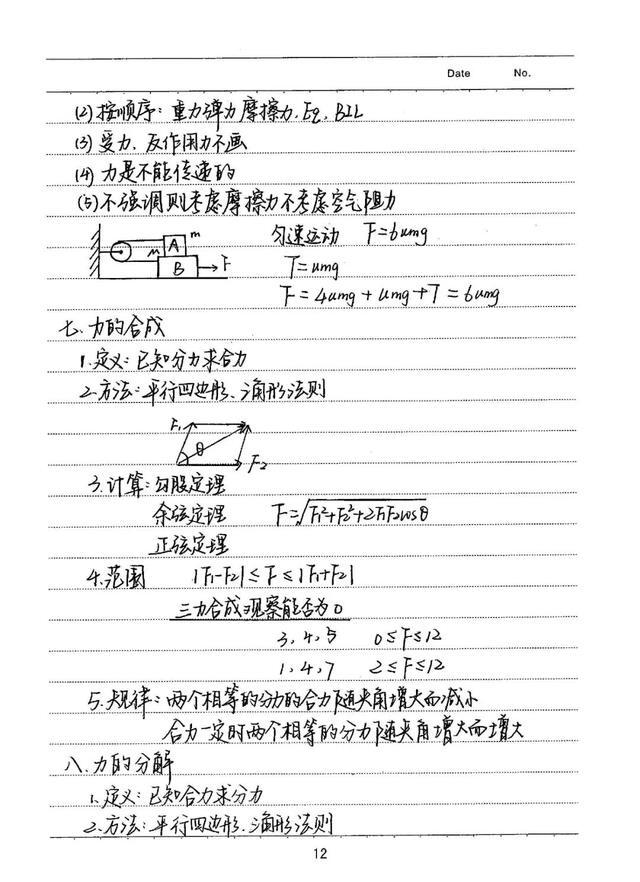 Date No.
(2)按顺序:重力弹力摩擦力.Eq.BIL
(3)受力.反作用力不画
(4)力是不能传递的
(5)不强调则考虑摩擦力不考虑空气阻力
m
A
M
B
F
匀速运动 F=6umg
T=umg
F=4umg+umg+T=6umg
七.力的合成
1.定义:已知分力求合力
2.方法:平行四边形.三角形法则
F₁
θ
F₂
3.计算:勾股定理
余弦定理 F=√F₁²+F₂²+2F₁F₂cosθ
正弦定理
4.范围 |F₁-F₂|≤F≤|F₁+F₂|
三力合成观察能否为0
3,4,5 0≤F≤12
1,4,7 2≤F≤12
5.规律:两个相等的分力的合力随夹角增大而减小
合力一定时两个相等的分力随夹角增大而增大
八.力的分解
1.定义:已知合力求分力
2.方法:平行四边形.三角形法则
12